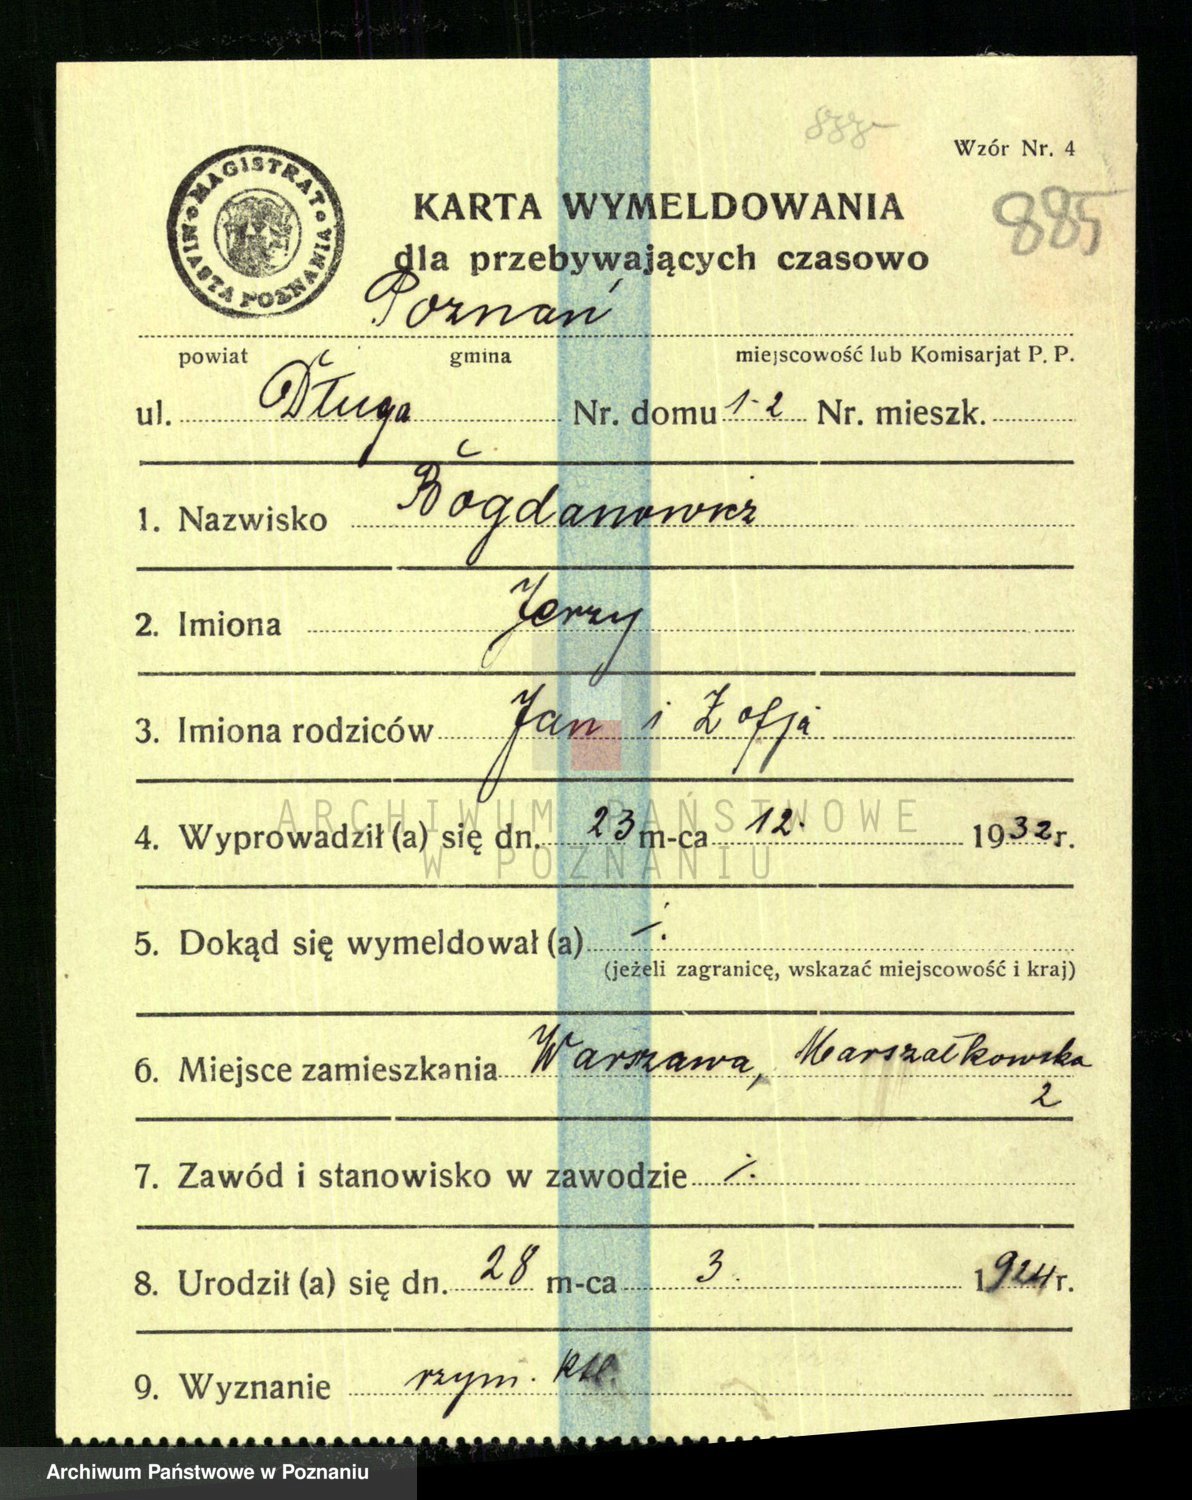 Wzór Nr. 4
885
MAGISTRAT MIASTA POZNANIA
KARTA WYMELDOWANIA
dla przebywających czasowo
Poznań
powiat gmina miejscowość lub Komisarjat P. P.
ul. Długa Nr. domu 1-2 Nr. mieszk.
1. Nazwisko Bogdanowicz
2. Imiona Jerzy
3. Imiona rodziców Jan i Zofja
ARCHIWUM PAŃSTWOWE
4. Wyprowadził (a) się dn. 23 m-ca 12. 1932 r.
W POZNANIU
5. Dokąd się wymeldował (a) ./.
(jeżeli zagranicę, wskazać miejscowość i kraj)
6. Miejsce zamieszkania Warszawa, Marszałkowska
2
7. Zawód i stanowisko w zawodzie ./.
8. Urodził (a) się dn. 28 m-ca 3. 1924 r.
9. Wyznanie rzym. ktl.
Archiwum Państwowe w Poznaniu